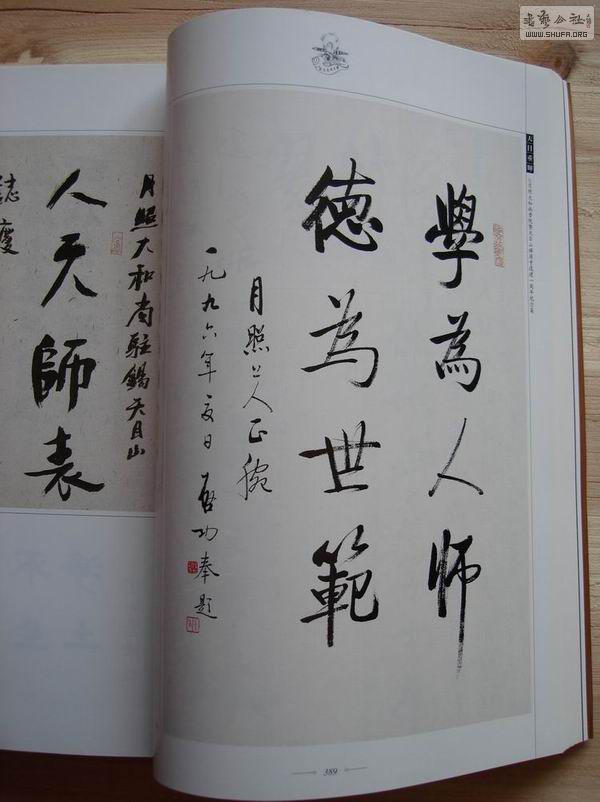 书艺公社
WWW.SHUFA.ORG
學為人师
德為世範
月照上人正腕
一九九六年夏日 啓功奉题
389
月照大和尚駐錫天目山
人天師表
誌慶